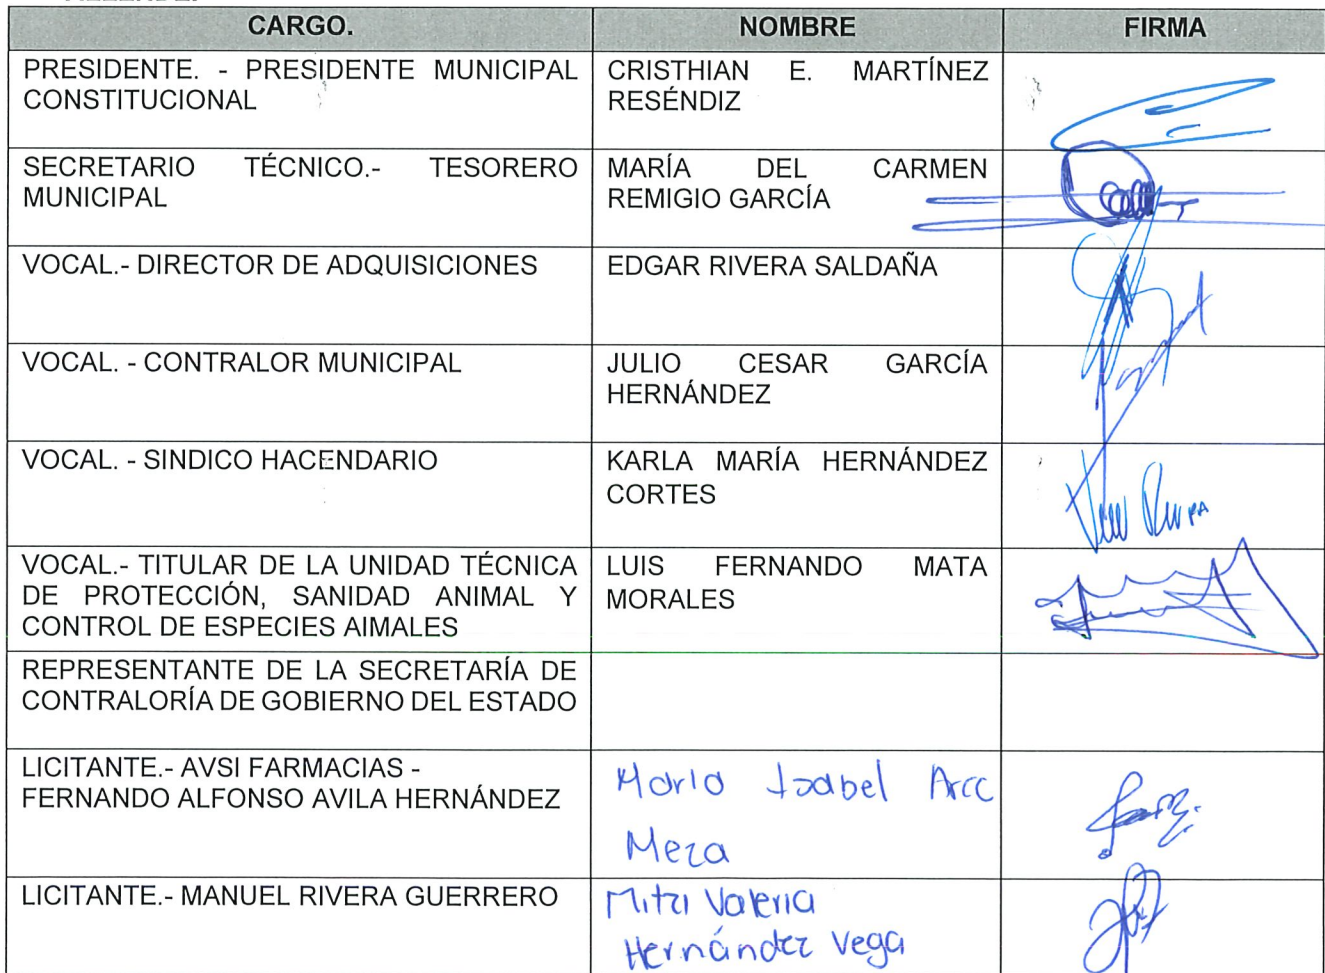 CARGO. NOMBRE FIRMA
PRESIDENTE. - PRESIDENTE MUNICIPAL
CONSTITUCIONAL
CRISTHIAN E. MARTÍNEZ
RESÉNDIZ
SECRETARIO TÉCNICO.- TESORERO
MUNICIPAL
MARÍA DEL CARMEN
REMIGIO GARCÍA
VOCAL.- DIRECTOR DE ADQUISICIONES
EDGAR RIVERA SALDAÑA
VOCAL. - CONTRALOR MUNICIPAL
JULIO CESAR GARCÍA
HERNÁNDEZ
VOCAL. - SINDICO HACENDARIO
KARLA MARÍA HERNÁNDEZ
CORTES
VOCAL.- TITULAR DE LA UNIDAD TÉCNICA
DE PROTECCIÓN, SANIDAD ANIMAL Y
CONTROL DE ESPECIES AIMALES
LUIS FERNANDO MATA
MORALES
REPRESENTANTE DE LA SECRETARÍA DE
CONTRALORÍA DE GOBIERNO DEL ESTADO
LICITANTE.- AVSI FARMACIAS -
FERNANDO ALFONSO AVILA HERNÁNDEZ
Maria Isabel
Meza
LICITANTE.- MANUEL RIVERA GUERRERO
Mitzi Valeria
Hernández Vega